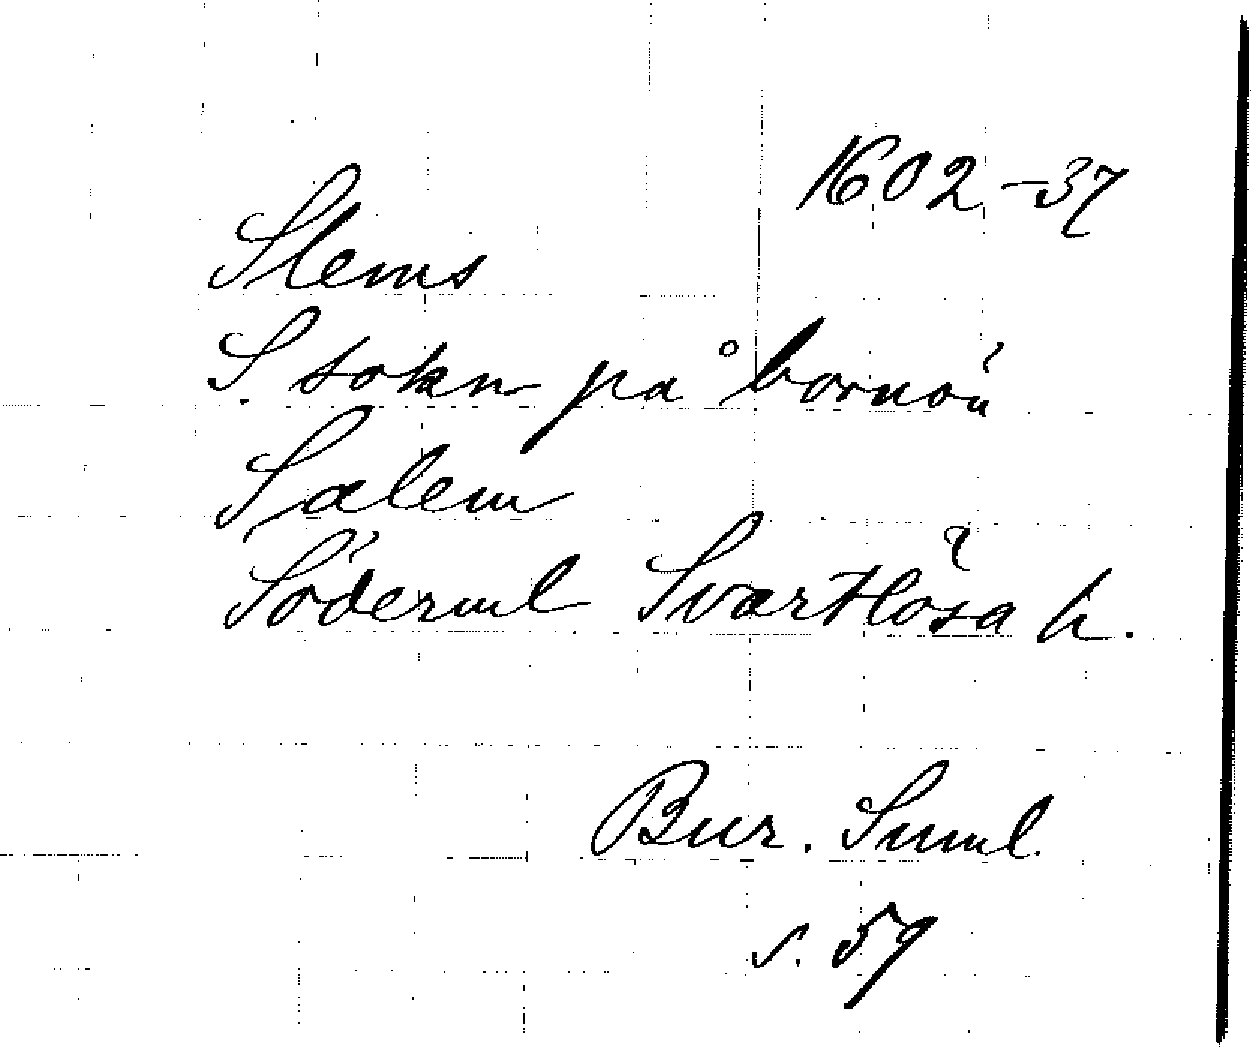 1602-37
Slems
S. sokn på bornöú
Salem
Söderml Svartlösa h.
Bur. Suml
s. 59